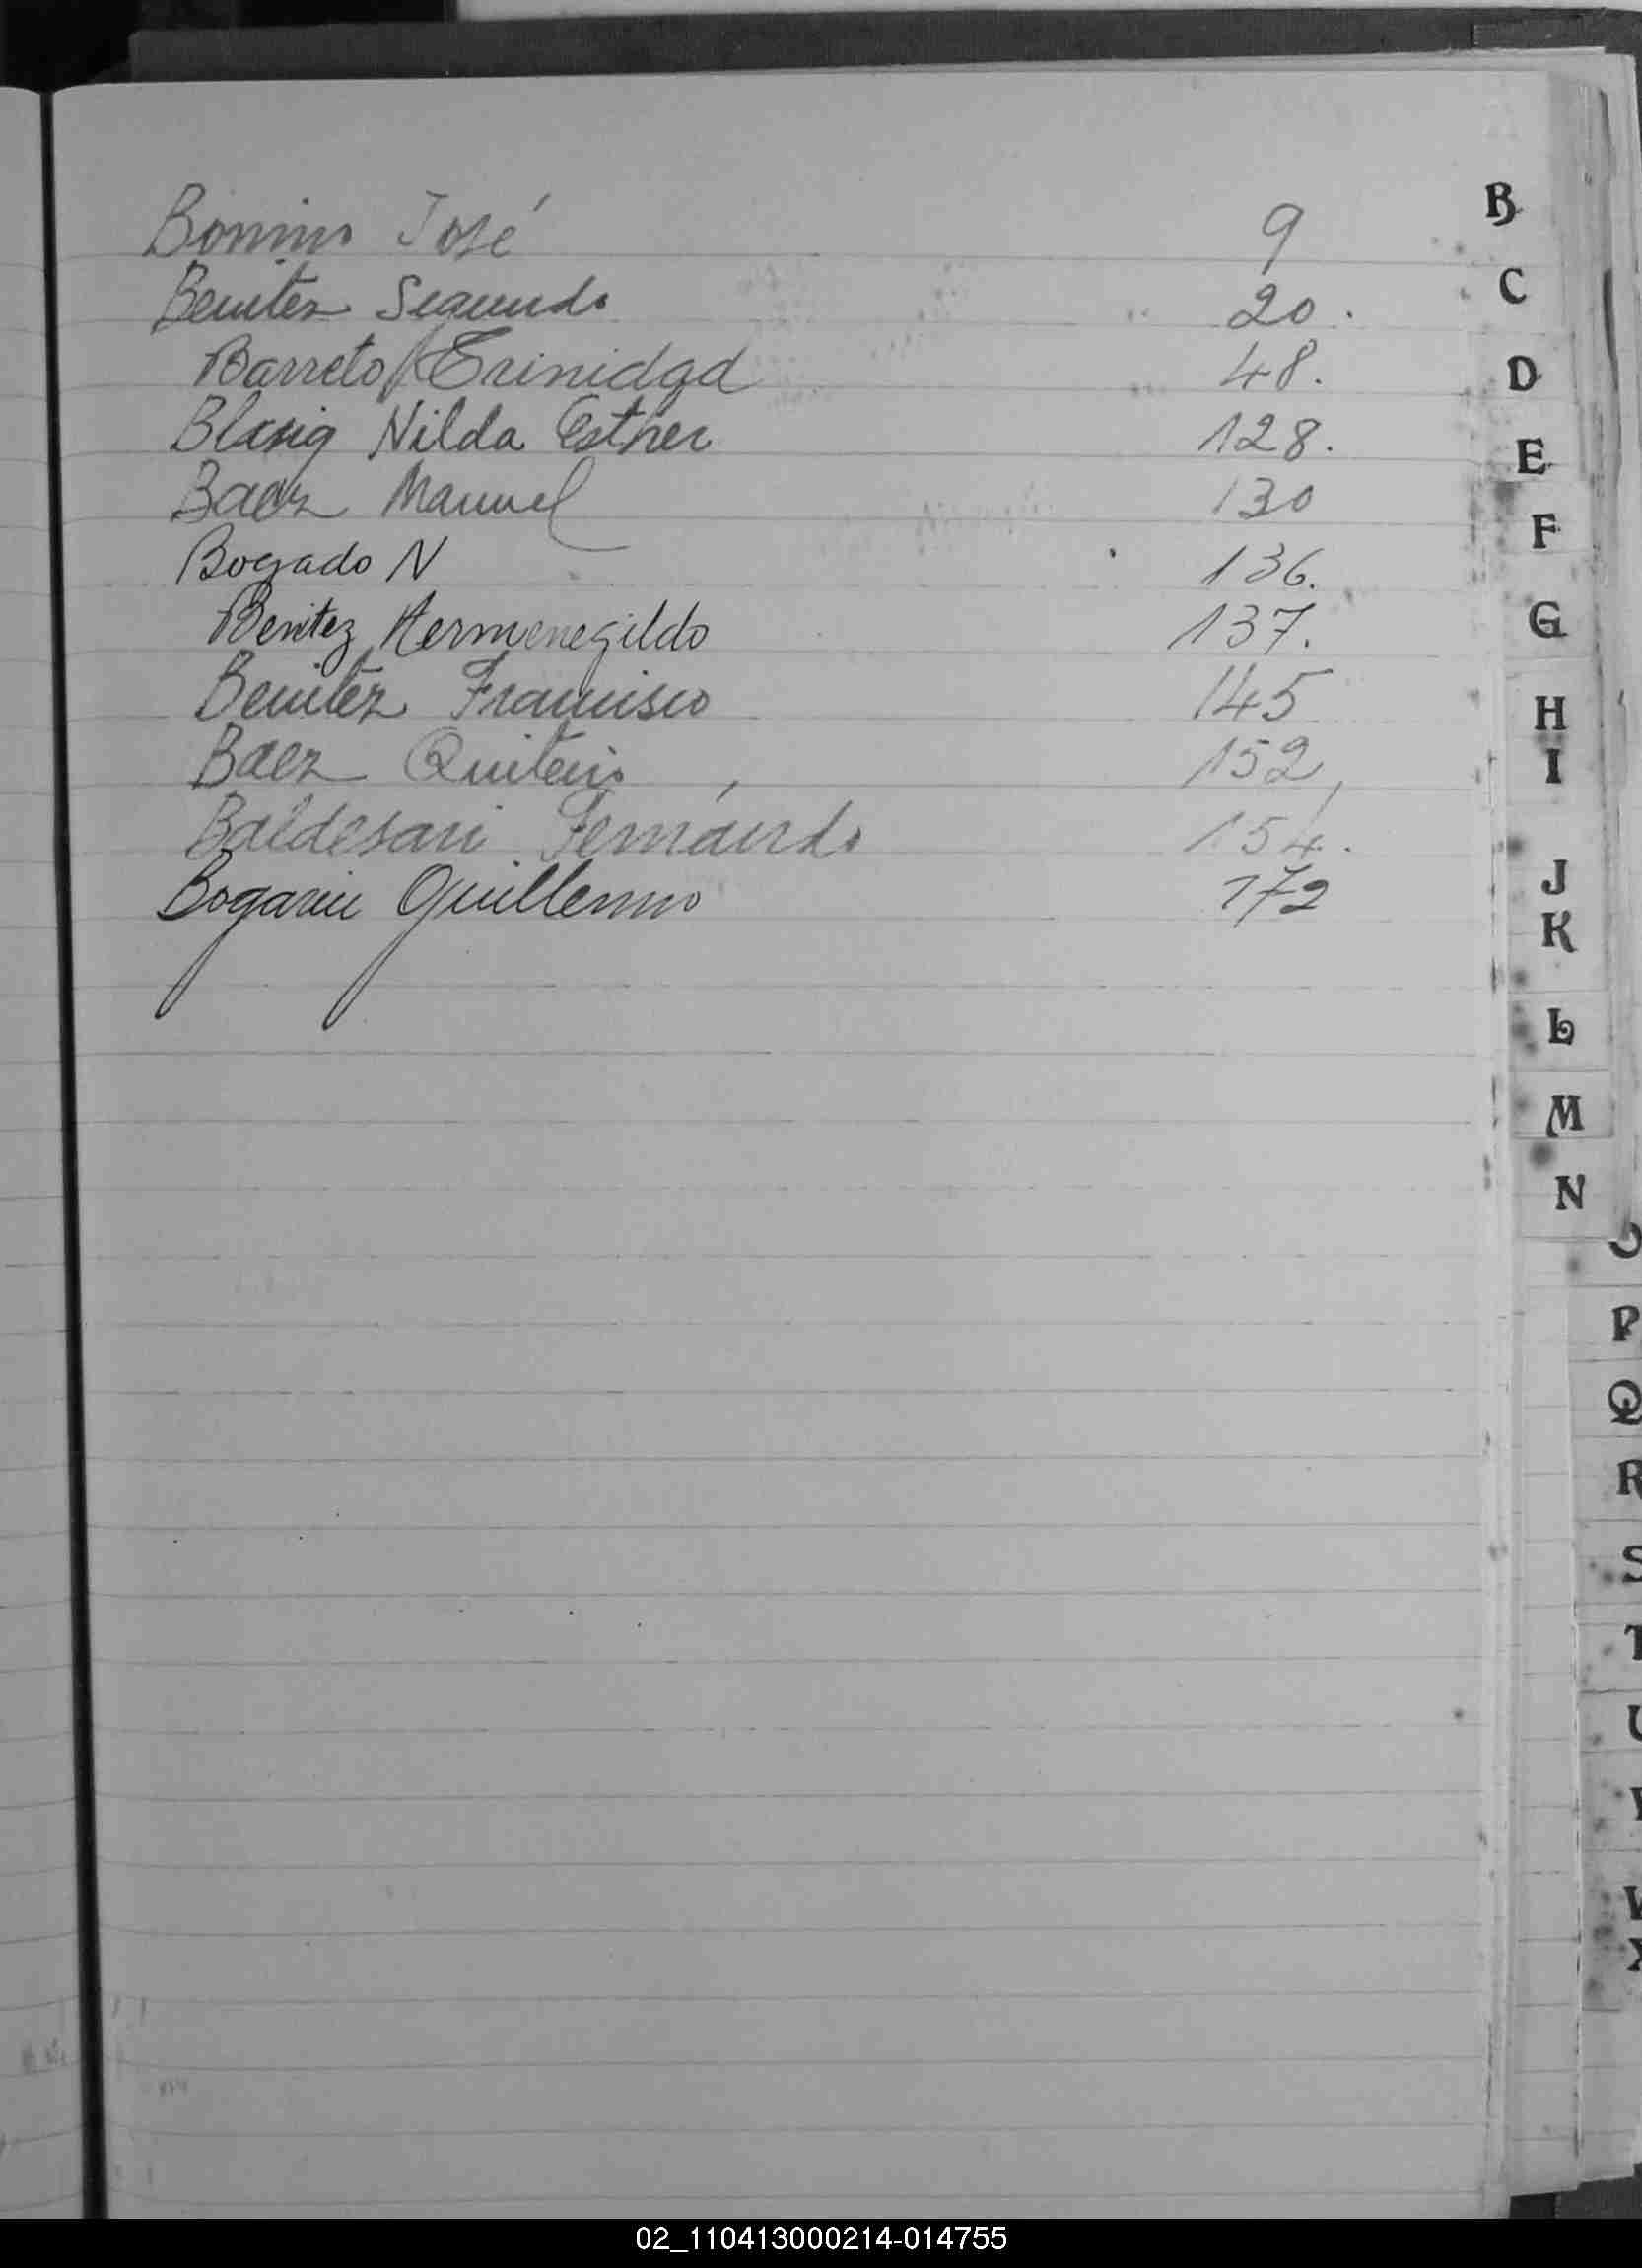 Bonino José 9
Benitez Segundo 20.
Barreto Trinidad 48.
Blasig Nilda Esther 128.
Baez Manuel 130
Bogado N 136.
Benitez Hermenegildo 137.
Benitez Francisco 145
Baez Quiterio 152
Baldesari Fernando 154.
Bogarin Guillermo 172
B
C
D
E
F
G
H
I
J
K
L
M
N
O
P
Q
R
S
T
U
V
W
X
02_110413000214-014755